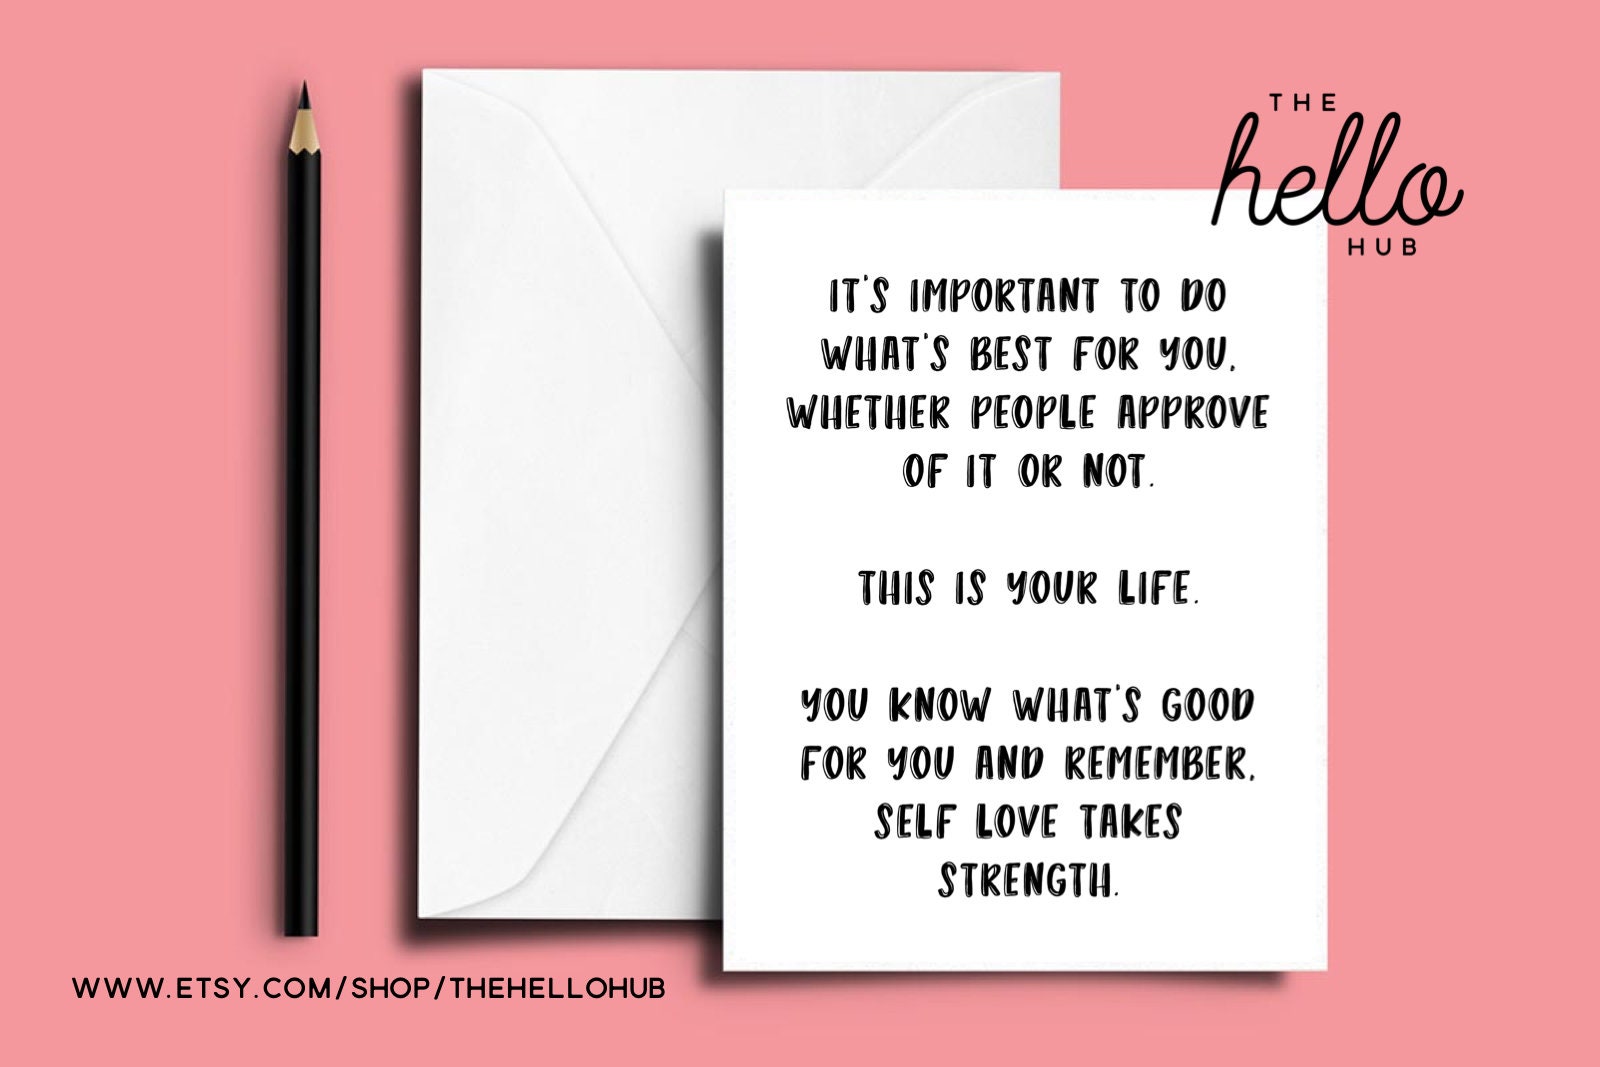 THE
hello
HUB
IT'S IMPORTANT TO DO
WHAT'S BEST FOR YOU,
WHETHER PEOPLE APPROVE
OF IT OR NOT.
THIS IS YOUR LIFE.
YOU KNOW WHAT'S GOOD
FOR YOU AND REMEMBER,
SELF LOVE TAKES
STRENGTH.
WWW.ETSY.COM/SHOP/THEHELLOHUB